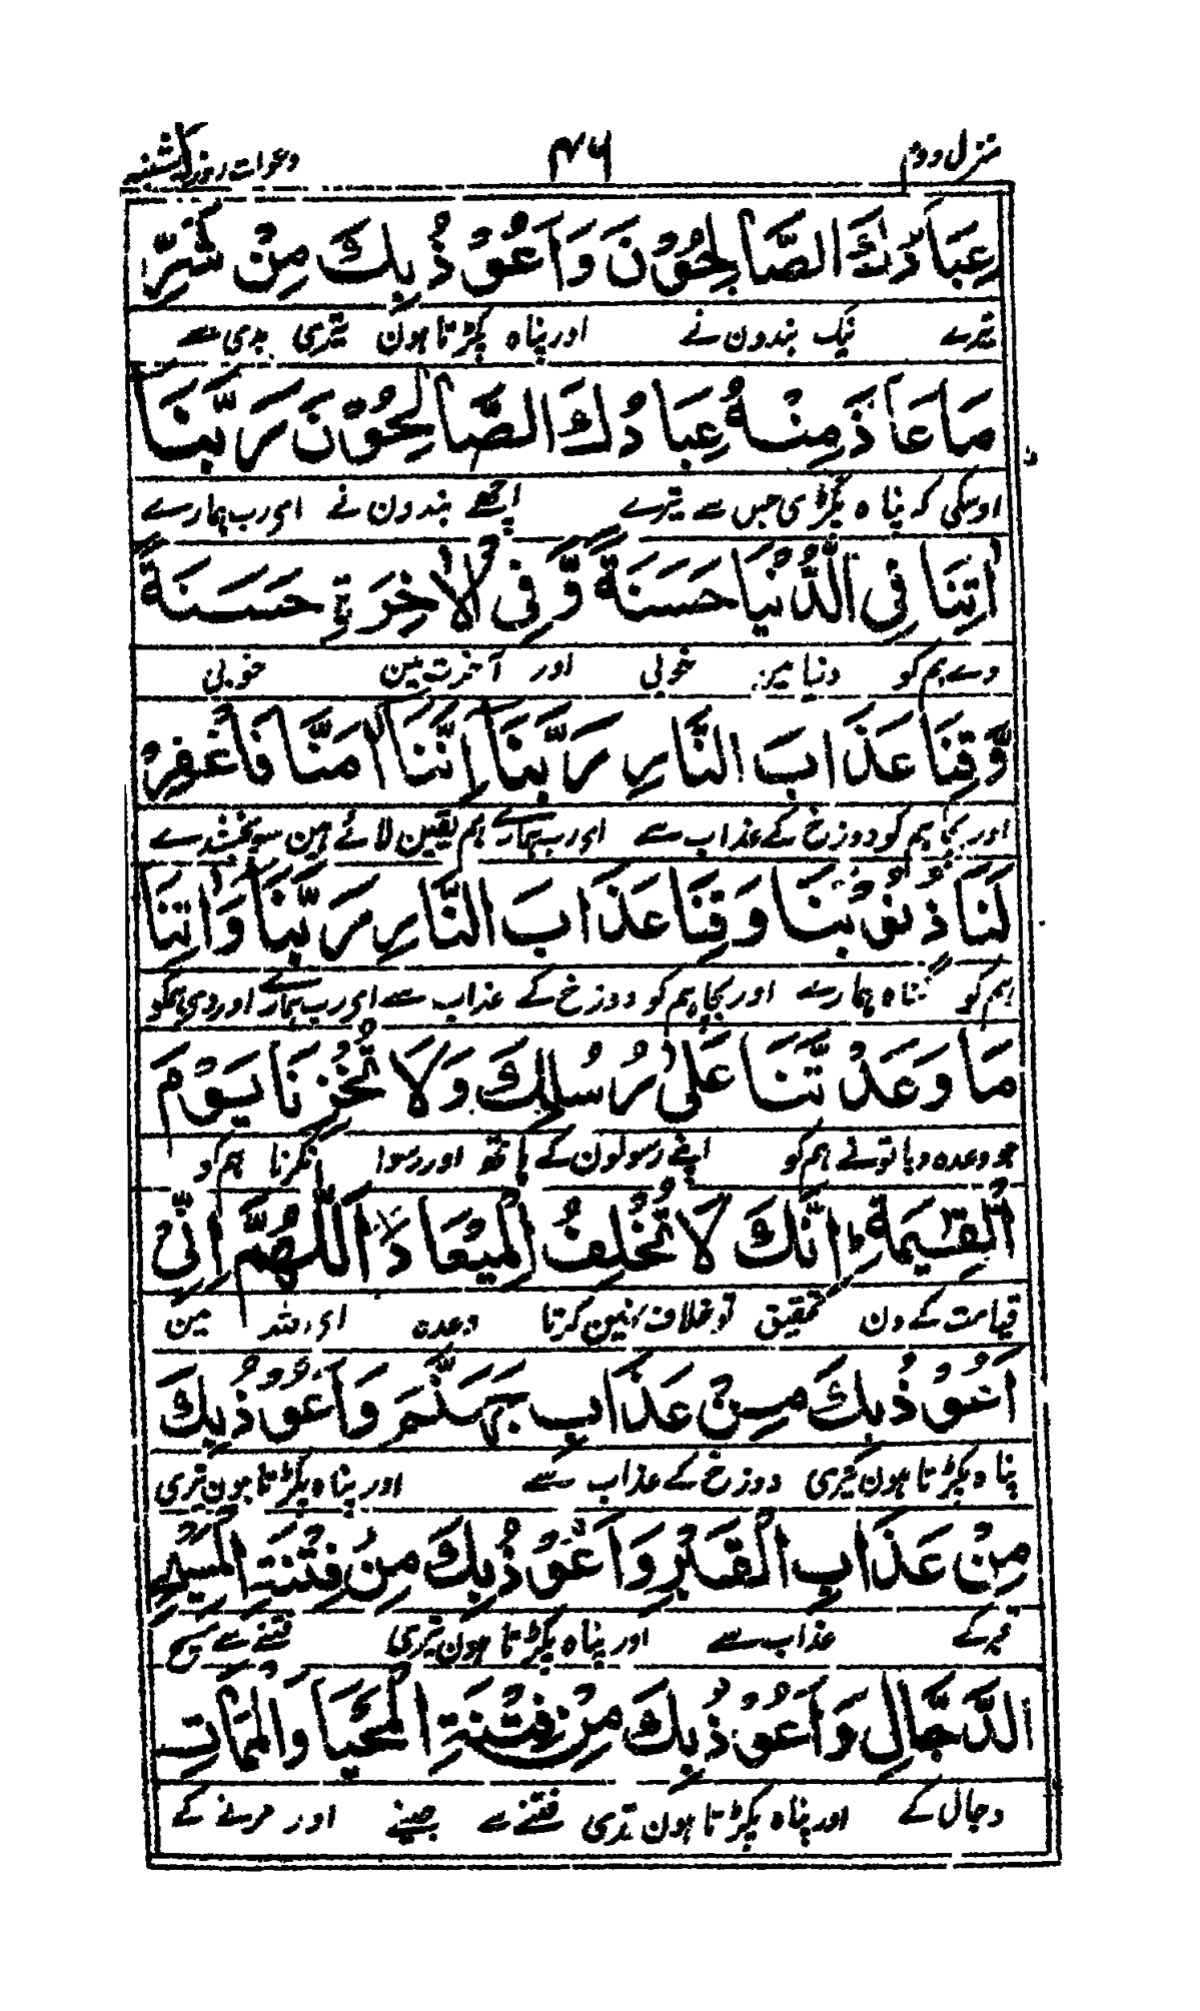 منزل دوم ۴۶ دعوات روز یکشنبه
عِبَادُكَ الصَّالِحُوْنَ وَاَعُوْذُ بِكَ مِنْ شَرِّ
تیرے نیک بندون نے اور پناہ پکڑتا ہون تیری بدی سے
مَا عَاذَ مِنْهُ عِبَادُكَ الصَّالِحُوْنَ رَبَّنَا
اوسکی کہ پناہ پکڑی جس سے تیرے اچھے بندون نے ای رب ہمارے
اٰتِنَا فِی الدُّنْيَا حَسَنَةً وَّفِی الْاٰخِرَةِ حَسَنَةً
دے ہم کو دنیا مین خوبی اور آخرت مین خوبی
وَّقِنَا عَذَابَ النَّارِ رَبَّنَا اِنَّنَا اٰمَنَّا فَاغْفِرْ
اور بچا ہم کو دوزخ کے عذاب سے ای رب ہمارے ہم یقین لائے ہین سو بخشدے
لَنَا ذُنُوْبَنَا وَقِنَا عَذَابَ النَّارِ رَبَّنَا وَاٰتِنَا
ہم کو گناہ ہمارے اور بچا ہم کو دوزخ کے عذاب سے ای رب ہمارے اور دی ہمکو
مَا وَعَدْتَّنَا عَلٰی رُسُلِكَ وَلَا تُخْزِنَا يَوْمَ
جو وعدہ دیا تونے ہم کو اپنے رسولون کے ہاتھ اور رسوا نکرنا ہم کو
الْقِيٰمَةِ ط اِنَّكَ لَا تُخْلِفُ الْمِيْعَادَ اَللّٰهُمَّ اِنِّی
قیامت کے دن تحقیق تو خلاف نہین کرتا وعدہ ای اللہ مین
اَعُوْذُ بِكَ مِنْ عَذَابِ جَهَنَّمَ وَاَعُوْذُ بِكَ
پناہ پکڑتا ہون تیری دوزخ کے عذاب سے اور پناہ پکڑتا ہون تیری
مِنْ عَذَابِ الْقَبْرِ وَاَعُوْذُ بِكَ مِنْ فِتْنَةِ الْمَسِيْحِ
قبر کے عذاب سے اور پناہ پکڑتا ہون تیری فتنے سے مسیح
الدَّجَّالِ وَاَعُوْذُ بِكَ مِنْ فِتْنَةِ الْمَحْيَا وَالْمَمَاتِ
دجال کے اور پناہ پکڑتا ہون تیری فتنے سے جینے اور مرنے کے